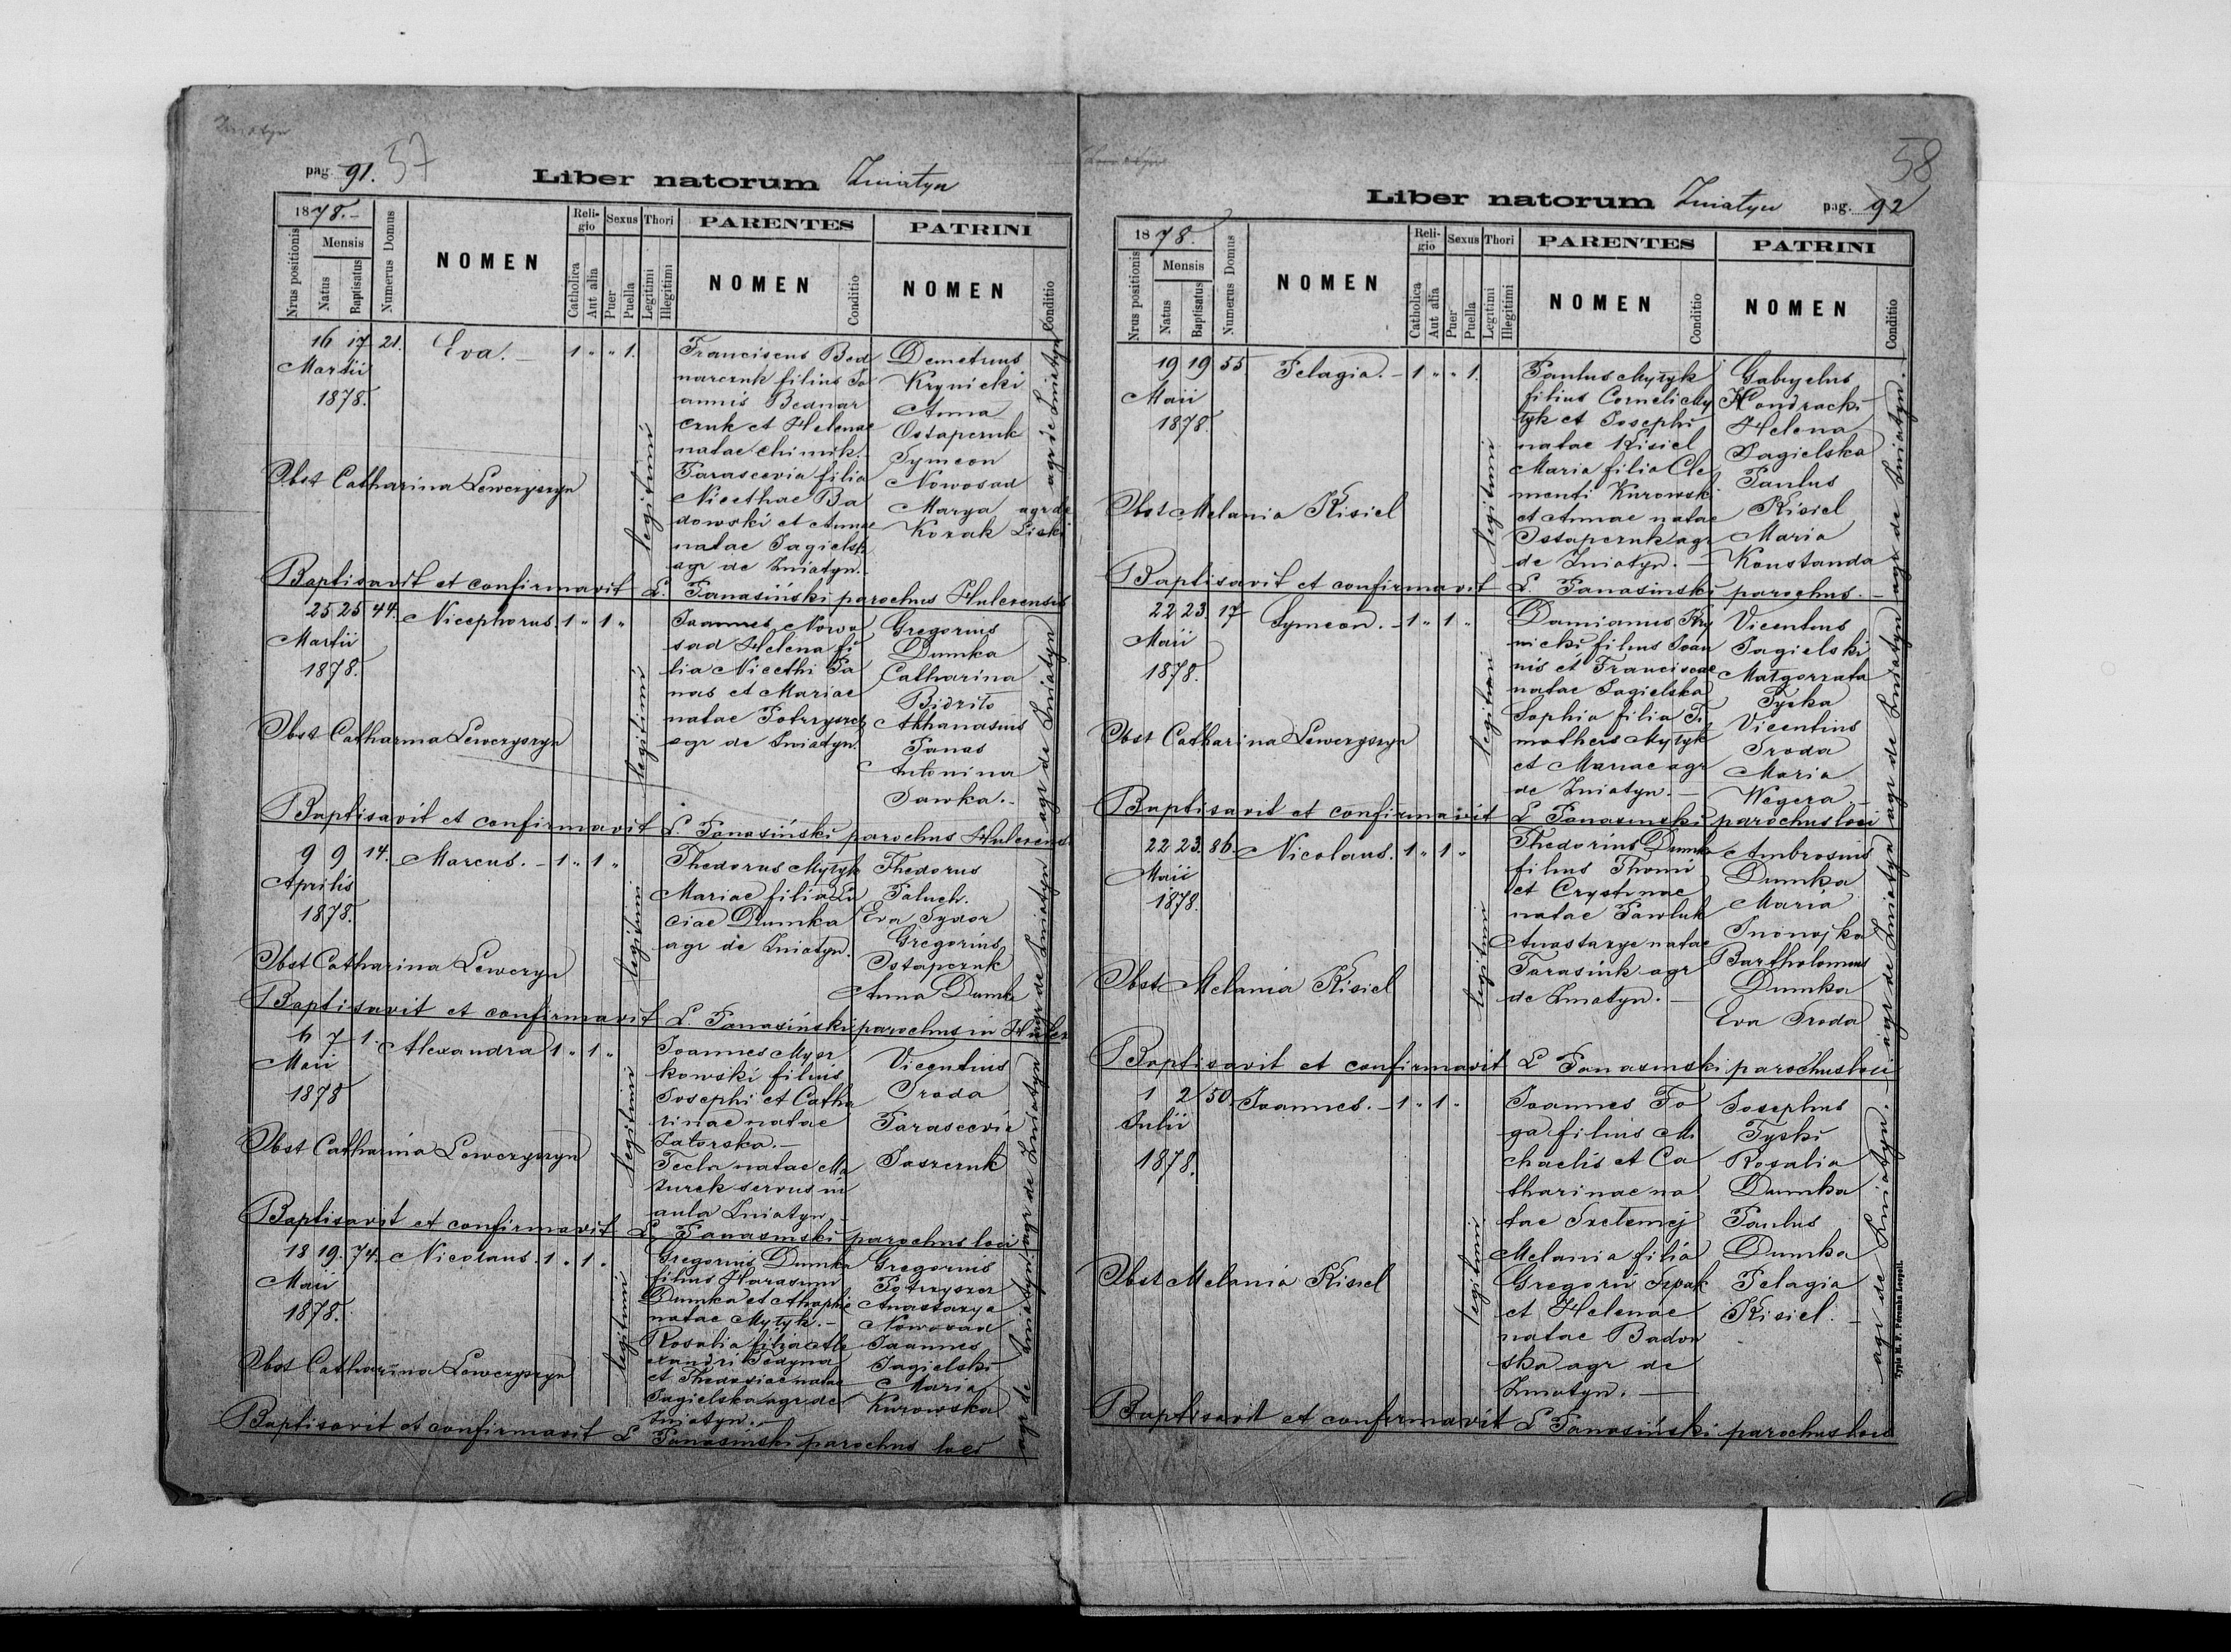 pag. 91. 57
Liber natorum Zniatyn
1878.
Nrus positionis
Mensis
Natus
Baptisatus
Numerus Domus
NOMEN
Religio
Catholica
Aut alia
Sexus
Puer
Puella
Thori
Legitimi
Illegitimi
PARENTES
NOMEN
Conditio
PATRINI
NOMEN
Conditio
16 17 21. Eva. 1 " " 1.
Martii
1878.
legitimi
Franciscus Bed
narczuk filius Jo
annis Bednar
czuk et Helenae
natae Chimik.
Parascevia filia
Nicethae Ba
dowski et Annae
natae Jagielsk
agr de Zniatyn.
Demetrius
Krynicki
Anna
Ostapczuk
Symeon
Nowosad
Marya agr de
Kozak Liski
agr de Zniatyn
Obst Catharina Леwczyszyn
Baptisavit et confirmavit L. Panasiński parochus Hulczensis
25 25 44. Nicephorus. 1 " 1 "
Martii
1878.
legitimi
Joannes Nowo
sad Helena fi
lia Nicethi Pa
nas et Mariae
natae Potrzyszcz
agr de Zniatyn.
Gregorius
Dumka
Catharina
Bidziło
Athanasius
Panas
Antonina
Sawka.
agr de Zniatyn
Obst Catharina Lewczyszyn
Baptisavit et confirmavit L. Panasiński parochus Hulczens
9 9 14. Marcus. 1 " 1 "
Aprilis
1878.
legitimi
Thedorus Mytyk
Mariae filia Lu
ciae Dumka
agr de Zniatyn.
Thedorus
Paluch.
Eva Sydor
Gregorius
Ostapczuk
Anna Dumka
agr de Zniatyn
Obst Catharina Lewczyn
Baptisavit et confirmavit L. Panasiński parochus in Hulcz
6 7 1. Alexandra 1 " 1 "
Maii
1878
legitimi
Joannes Mysz
kowski filius
Josephi et Catha
rinae natae
Zatorska.
Tecla natae Ma
zurek servus in
aula Zniatyn
Vicentius
Sroda
Parascevia
Saszczuk
agr de Zniatyn
Obst Catharina Lewczyszyn
Baptisavit et confirmavit L. Panasinski parochus loci
18 19. 74. Nicolaus. 1 " 1 "
Maii
1878.
legitimi
Gregorius Dumka
filius Harasym
Dumka et Ahaphie
natae Mytyk.
Rosalia filia Ale
xandri
et Thedosiae natae
Jagielska agr de
Zniatyn.
Gregorius
Potrzyszcz
Anastazya
Nowosad
Joannes
Jagielski
Maria
Kurowska
agr de Zniatyn
Obst Catharina Lewczyszyn
Baptisavit et confirmavit L Panasiński parochus loci
58
Liber natorum Zniatyn pag. 92
1878.
Nrus positionis
Mensis
Natus
Baptisatus
Numerus Domus
NOMEN
Religio
Catholica
Aut alia
Sexus
Puer
Puella
Thori
Legitimi
Illegitimi
PARENTES
NOMEN
Conditio
PATRINI
NOMEN
Conditio
19 19 55 Pelagia. 1 " " 1.
Maii
1878.
legitimi
Paulus Mytyk
filius Corneli My
tyk et Josephi
natae Kisiel
Maria filia Cle
menti Kurowski
et Annae natae
Ostapczuk agr
de Zniatyn.
Gabryelus
Kondracki
Helena
Jagielska
Paulus
Kisiel
Maria
Konstanda
agr de Zniatyn.
Obst Melania Kisiel
Baptisavit et confirmavit L. Panasinski parochus.
22 23. 17 Symeon. 1 " 1 "
Maii
1878.
legitimi
Damianus Kry
nicki filius Joan
nis et Franciscae
natae Jagielska
Sophia filia Ti
motheis Mytyk
et Mariae agr
de Zniatyn.
Vicentius
Jagielski
Małgorzata
Tyska
Vicentius
Sroda
Maria
Wegera
agr de Zniatyn
Obst Catharina Lewczyszyn
Baptisavit et confirmavit L Panasinski parochus loci
22 23. 86. Nicolaus. 1 " 1 "
Maii
1878.
legitimi
Thedorius Dumka
filius Thomi
et Crystinae
natae Pawluk
Anastazye natae
Tarasiuk agr
de Zniatyn.
Ambrosius
Dumka
Maria
Bartholomeus
Dumka
Eva Sroda
agr de Zniatyn
Obst Melania Kisiel
Baptisavit et confirmavit L Panasinski parochus loci
1 2 50. Joannes. 1 " 1 "
Julii
1878.
legitimi
Joannes Fo
ga filius Mi
chaelis et Ca
tharinae na
tae
Melania filia
Gregorii Szpak
et Helenae
natae Badow
ska agr de
Zniatyn.
Josephus
Tyski
Rosalia
Dumka
Paulus
Dumka
Pelagia
Kisiel.
agr de Zniatyn.
Obst Melania Kisiel
Baptisavit et confirmavit L Panasiński parochus loci
Typis M. F. Poremba Leopoli.